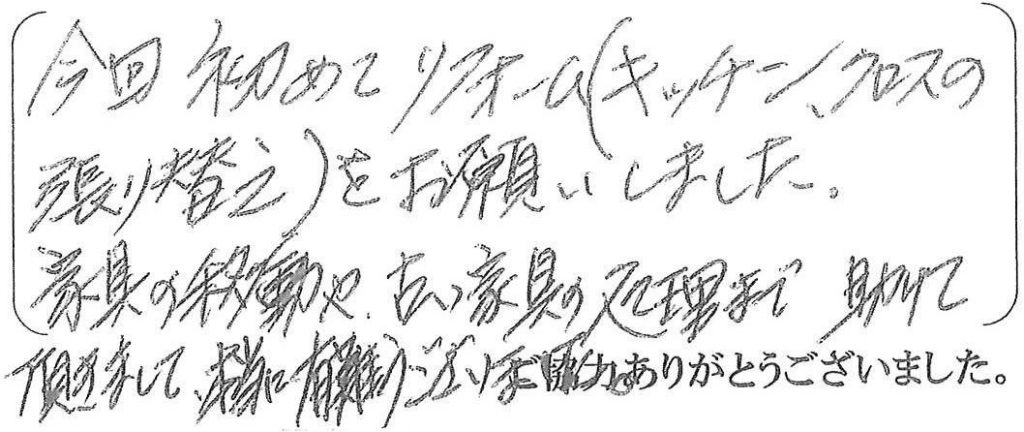 今回初めてリフォーム(キッチン、クロスの
張り替え)をお願いしました。
家具の移動や、古い家具の処理まで助けて
頂きまして、有難うございました。ご協力ありがとうございました。